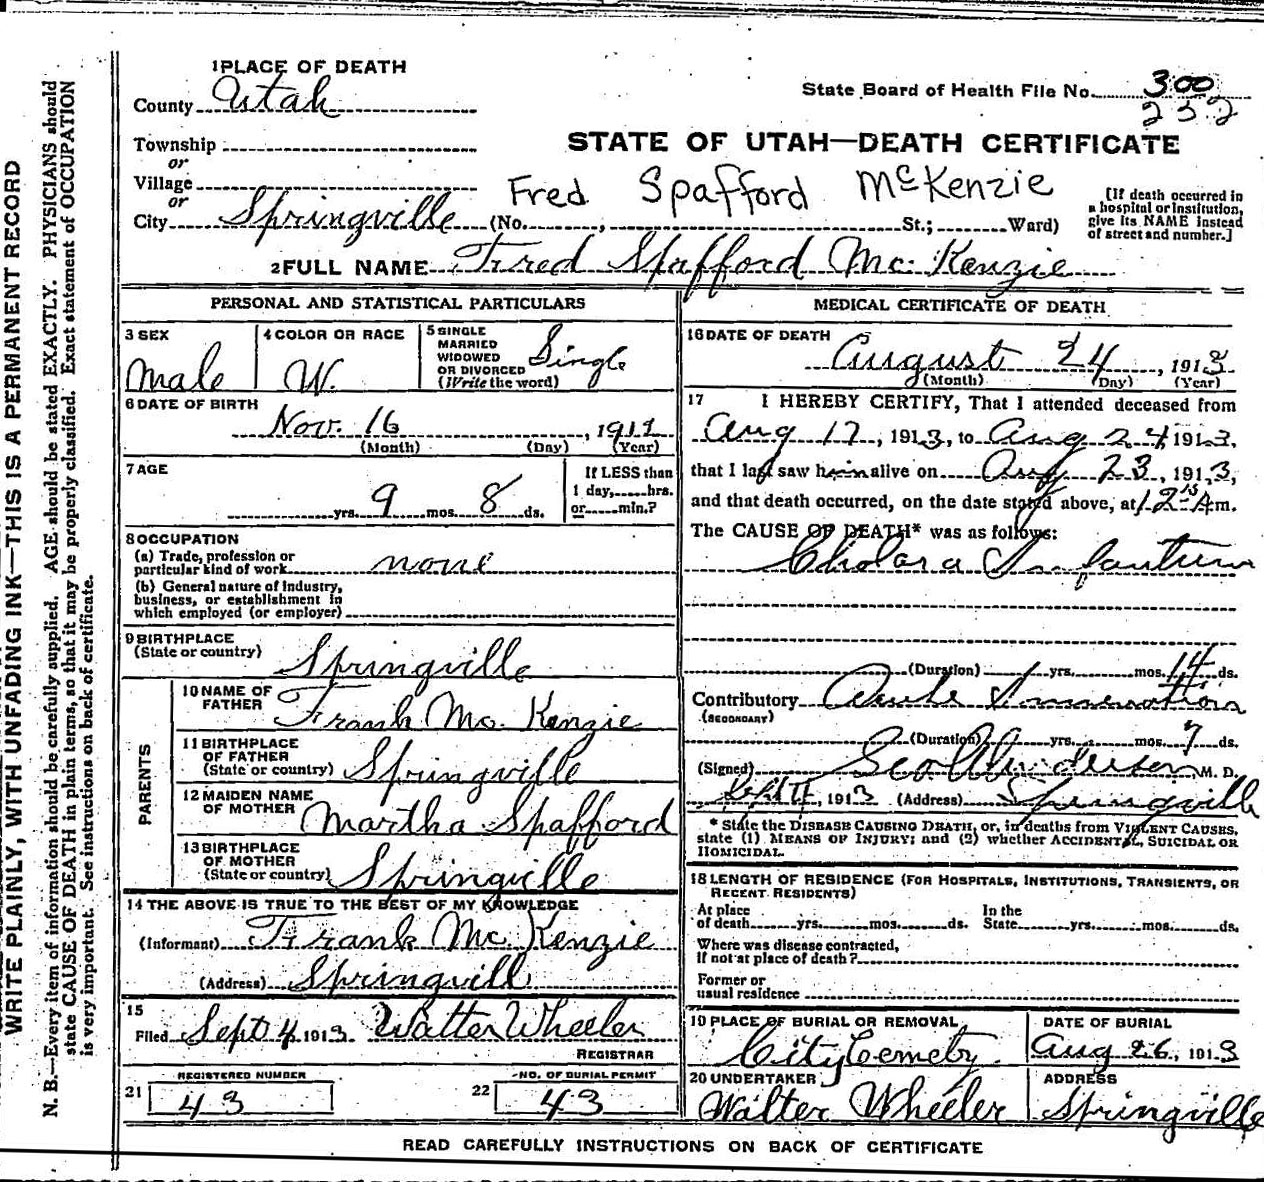 1 PLACE OF DEATH
County Utah
State Board of Health File No. 300
232
Township
or
Village
or
City Springville (No. , St.; Ward)
STATE OF UTAH—DEATH CERTIFICATE
Fred Spafford McKenzie
[If death occurred in
a hospital or institution,
give its NAME instead
of street and number.]
2 FULL NAME Fred Spafford Mc. Kenzie
PERSONAL AND STATISTICAL PARTICULARS
3 SEX
Male
4 COLOR OR RACE
W.
5 SINGLE
MARRIED
WIDOWED
OR DIVORCED
(Write the word)
Single
6 DATE OF BIRTH
Nov. 16, 191
(Month) (Day) (Year)
7 AGE
yrs. 9 mos. 8 ds.
If LESS than
1 day, hrs.
or min.?
8 OCCUPATION
(a) Trade, profession or
particular kind of work none
(b) General nature of industry,
business, or establishment in
which employed (or employer)
9 BIRTHPLACE
(State or country) Springville
PARENTS
10 NAME OF
FATHER Frank Mc. Kenzie
11 BIRTHPLACE
OF FATHER
(State or country) Springville
12 MAIDEN NAME
OF MOTHER Martha Spafford
13 BIRTHPLACE
OF MOTHER
(State or country) Springville
14 THE ABOVE IS TRUE TO THE BEST OF MY KNOWLEDGE
(Informant) Frank Mc Kenzie
(Address) Springvill
15
Filed Sept 4 1913 Walter Wheeler
REGISTRAR
REGISTERED NUMBER
21 43
NO. OF BURIAL PERMIT
22 43
MEDICAL CERTIFICATE OF DEATH
16 DATE OF DEATH
August 24, 1913
(Month) (Day) (Year)
17 I HEREBY CERTIFY, That I attended deceased from
Aug 17, 1913, to Aug 24 1913,
that I last saw him alive on Aug 23, 1913,
and that death occurred, on the date stated above, at 12 15 A m.
The CAUSE OF DEATH* was as follows:
Cholara Infantum
(Duration) yrs. mos. 14 ds.
Contributory Acute
(SECONDARY)
(Duration) yrs. mos. 7 ds.
(Signed) Geo A Anderson, M. D.
Sept 11, 1913 (Address) Springville
* State the DISEASE CAUSING DEATH, or, in deaths from VIOLENT CAUSES,
state (1) MEANS OF INJURY; and (2) whether ACCIDENTAL, SUICIDAL OR
HOMICIDAL.
18 LENGTH OF RESIDENCE (FOR HOSPITALS, INSTITUTIONS, TRANSIENTS, OR
RECENT RESIDENTS)
At place In the
of death yrs. mos. ds. State yrs. mos. ds.
Where was disease contracted,
if not at place of death?
Former or
usual residence
19 PLACE OF BURIAL OR REMOVAL
City Cemety.
DATE OF BURIAL
Aug 26, 1913
20 UNDERTAKER
Walter Wheeler
ADDRESS
Springville
READ CAREFULLY INSTRUCTIONS ON BACK OF CERTIFICATE
WRITE PLAINLY, WITH UNFADING INK—THIS IS A PERMANENT RECORD
N. B.—Every item of information should be carefully supplied. AGE should be stated EXACTLY. PHYSICIANS should
state CAUSE OF DEATH in plain terms, so that it may be properly classified. Exact statement of OCCUPATION
is very important. See instructions on back of certificate.